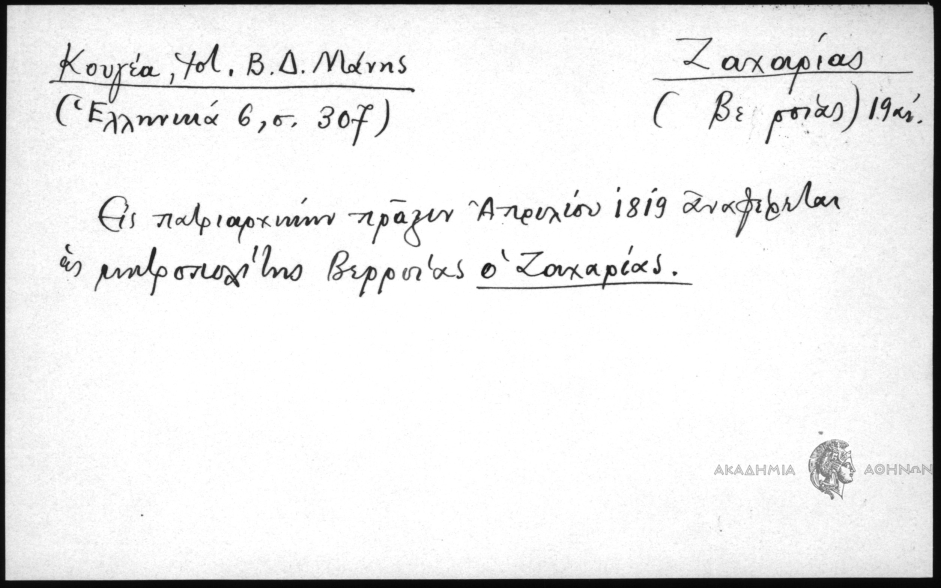 Κουγέα, Ἱστ. Β.Δ. Μάνης
(Ἑλληνικά 6, σ. 307)
Ζαχαρίας
(Βε ρροίας) 19 αἰ.
Εἰς πατριαρχικὴν πρᾶξιν Ἀπριλίου 1819 ἀναφέρεται
ὡς μητροπολίτης Βερροίας ὁ Ζαχαρίας.
ΑΚΑΔΗΜΙΑ ΑΘΗΝΩΝ